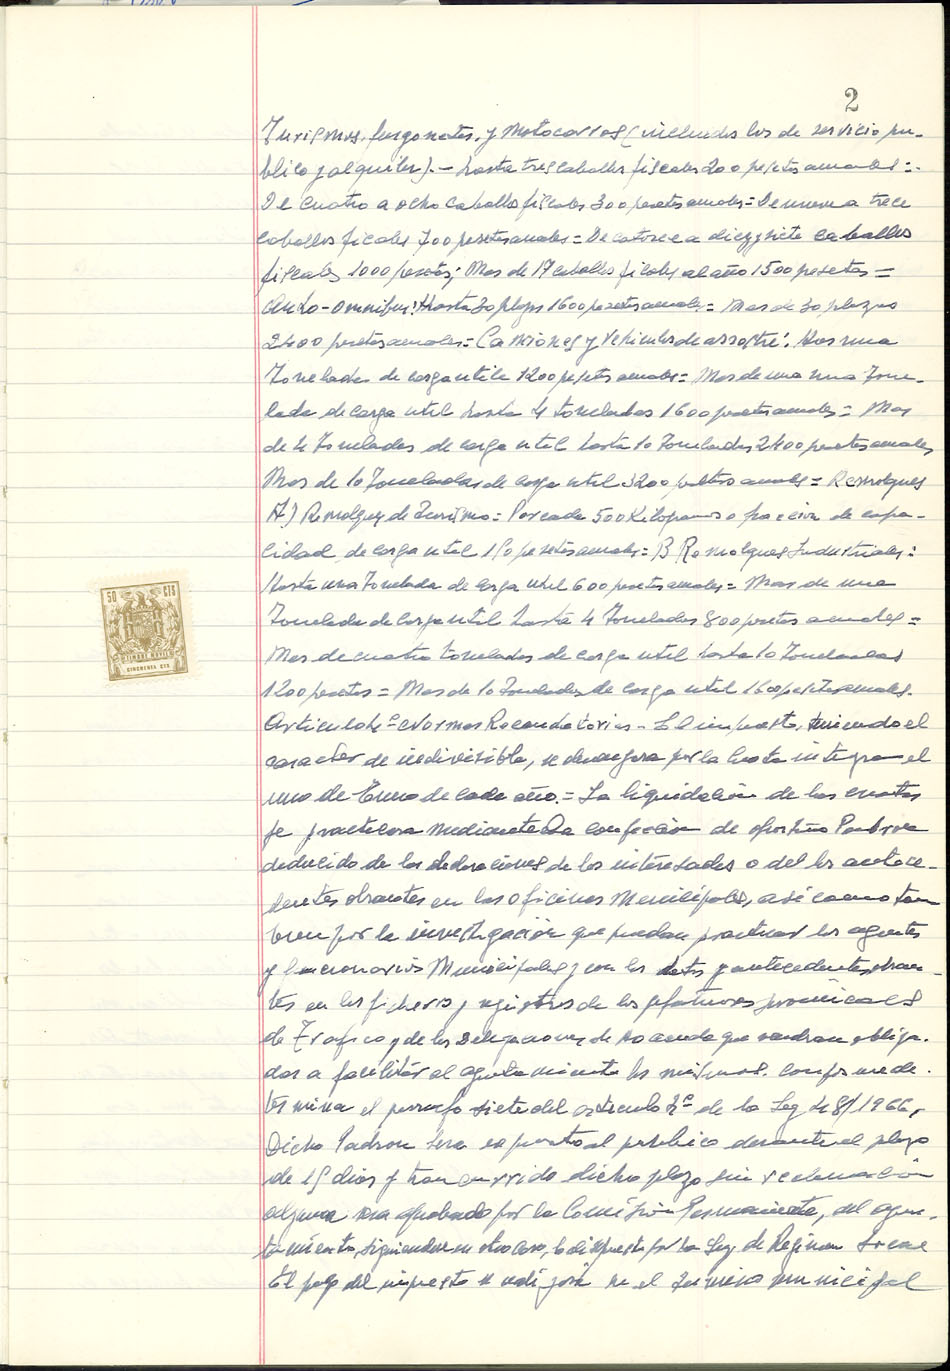 2
Turismos, furgonetas, y Motocarros (incluidos los de servicio pu-
blico y alquiler).- hasta tres caballos fiscales 200 pesetas anuales=.
De cuatro a ocho caballos fiscales 300 pesetas anuales= De nueve a trece
caballos ficales 700 pesetas anuales= De catorce a diez y siete caballos
fiscales 1000 pesetas; Mas de 17 caballos ficales al año 1500 pesetas =
Auto-omnibus: Hasta 30 plazas 1600 pesetas anuales= Mas de 30 plazas
2400 pesetas anuales= Camiones y Vehiculos de arrastre: una
Tonelada de carga util 1200 pesetas anuales= Mas de una Tone-
lada de carga util hasta 4 toneladas 1600 pesetas anuales= Mas
de 4 Toneladas de carga util hasta 10 Toneladas 2400 pesetas anuales
Mas de 10 Toneladas de carga util 3200 pesetas anuales= Remolques
A) Remolques de Turismo= Por cada 500 Kilogramos o fraccion de capa-
cidad de carga util 150 pesetas anuales= B Remolques Industriales=
Hasta una Tonelada de carga util 600 pesetas anuales= Mas de una
Tonelada de carga util hasta 4 Toneladas 800 pesetas anuales=
Mas de cuatro toneladas de carga util hasta 10 Toneladas
1200 pesetas= Mas de 10 Toneladas de carga util 1600 pesetas anuales.
Articulo 4º Normas Recaudatorias- El impuesto, teniendo el
caracter de indivisible, se devengara por la cuota integra el
uno de Enero de cada año.= La liquidación de las cuotas
se practicara mediante la confección de oportuno Padron
deducido de las declaraciones de los interesados o del los antece-
dentes obrantes en las Oficinas Municipales, asi como tam
bien por la investigación que puedan practicar los agentes
y funcionarios Municipales y con los datos y antecedentes obran-
tes en los ficheros y registros de las jefaturas provinciales
de Trafico y de las Delegaciones de Hacienda que vendran obliga-
das a facilitar al ayuntamiento los mismos. conforme de-
termina el parrafo siete del articulo 4º de la Ley 48/1966,
Dicho Padron sera expuesto al publico durante el plazo
de 15 dias y transcurrido dicho plazo sin reclamación
alguna sera aprobado por la Comisión Permanente, del ayun-
tamiento, siguiendose en otro caso, lo dispuesto por la Ley de Regimen Local
El pago del impuesto se en el Termino municipal
50 CTS
TIMBRE MOVIL
CINCUENTA CTS